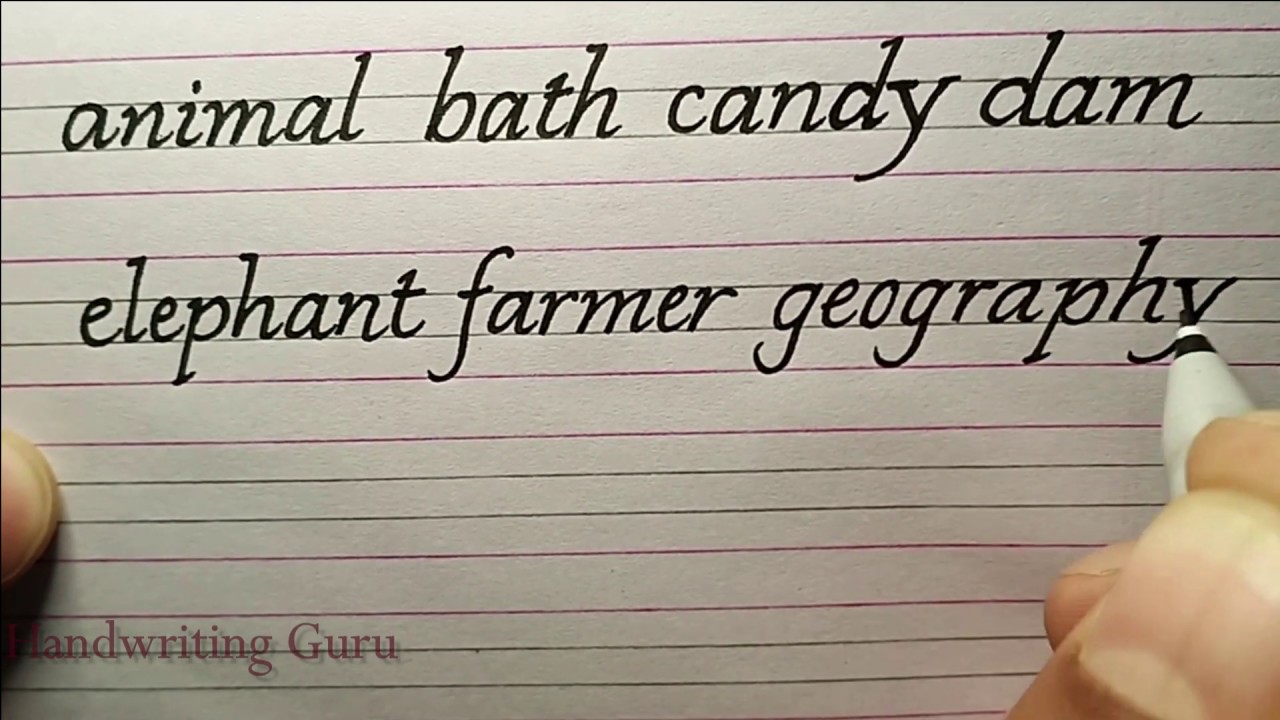 animal bath candy dam
elephant farmer geography
Handwriting Guru